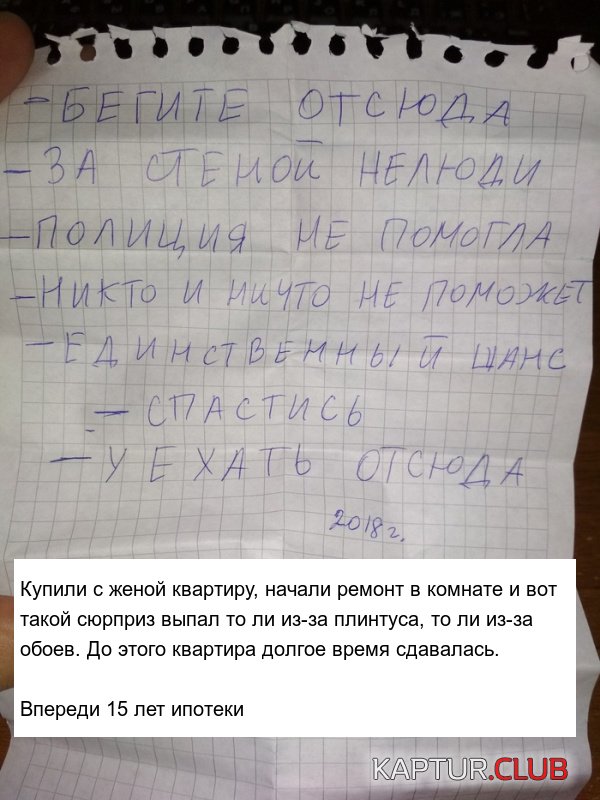 - БЕГИТЕ ОТСЮДА
- ЗА СТЕНОЙ НЕЛЮДИ
- ПОЛИЦИЯ НЕ ПОМОГЛА
- НИКТО И НИЧТО НЕ ПОМОЖЕТ
- ЕДИНСТВЕННЫЙ ШАНС
- СПАСТИСЬ
- УЕХАТЬ ОТСЮДА
2018г.
Купили с женой квартиру, начали ремонт в комнате и вот
такой сюрприз выпал то ли из-за плинтуса, то ли из-за
обоев. До этого квартира долгое время сдавалась.
Впереди 15 лет ипотеки
KAPTUR.CLUB